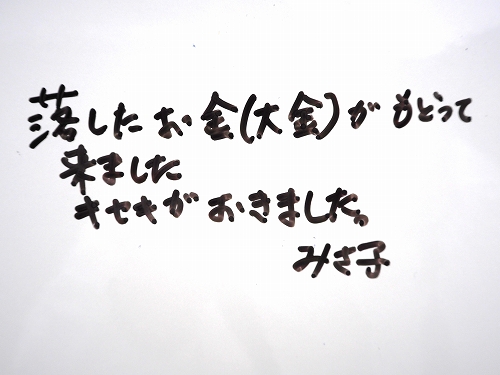 落したお金(大金)がもどって
来ました
キセキがおきました。
みさ子